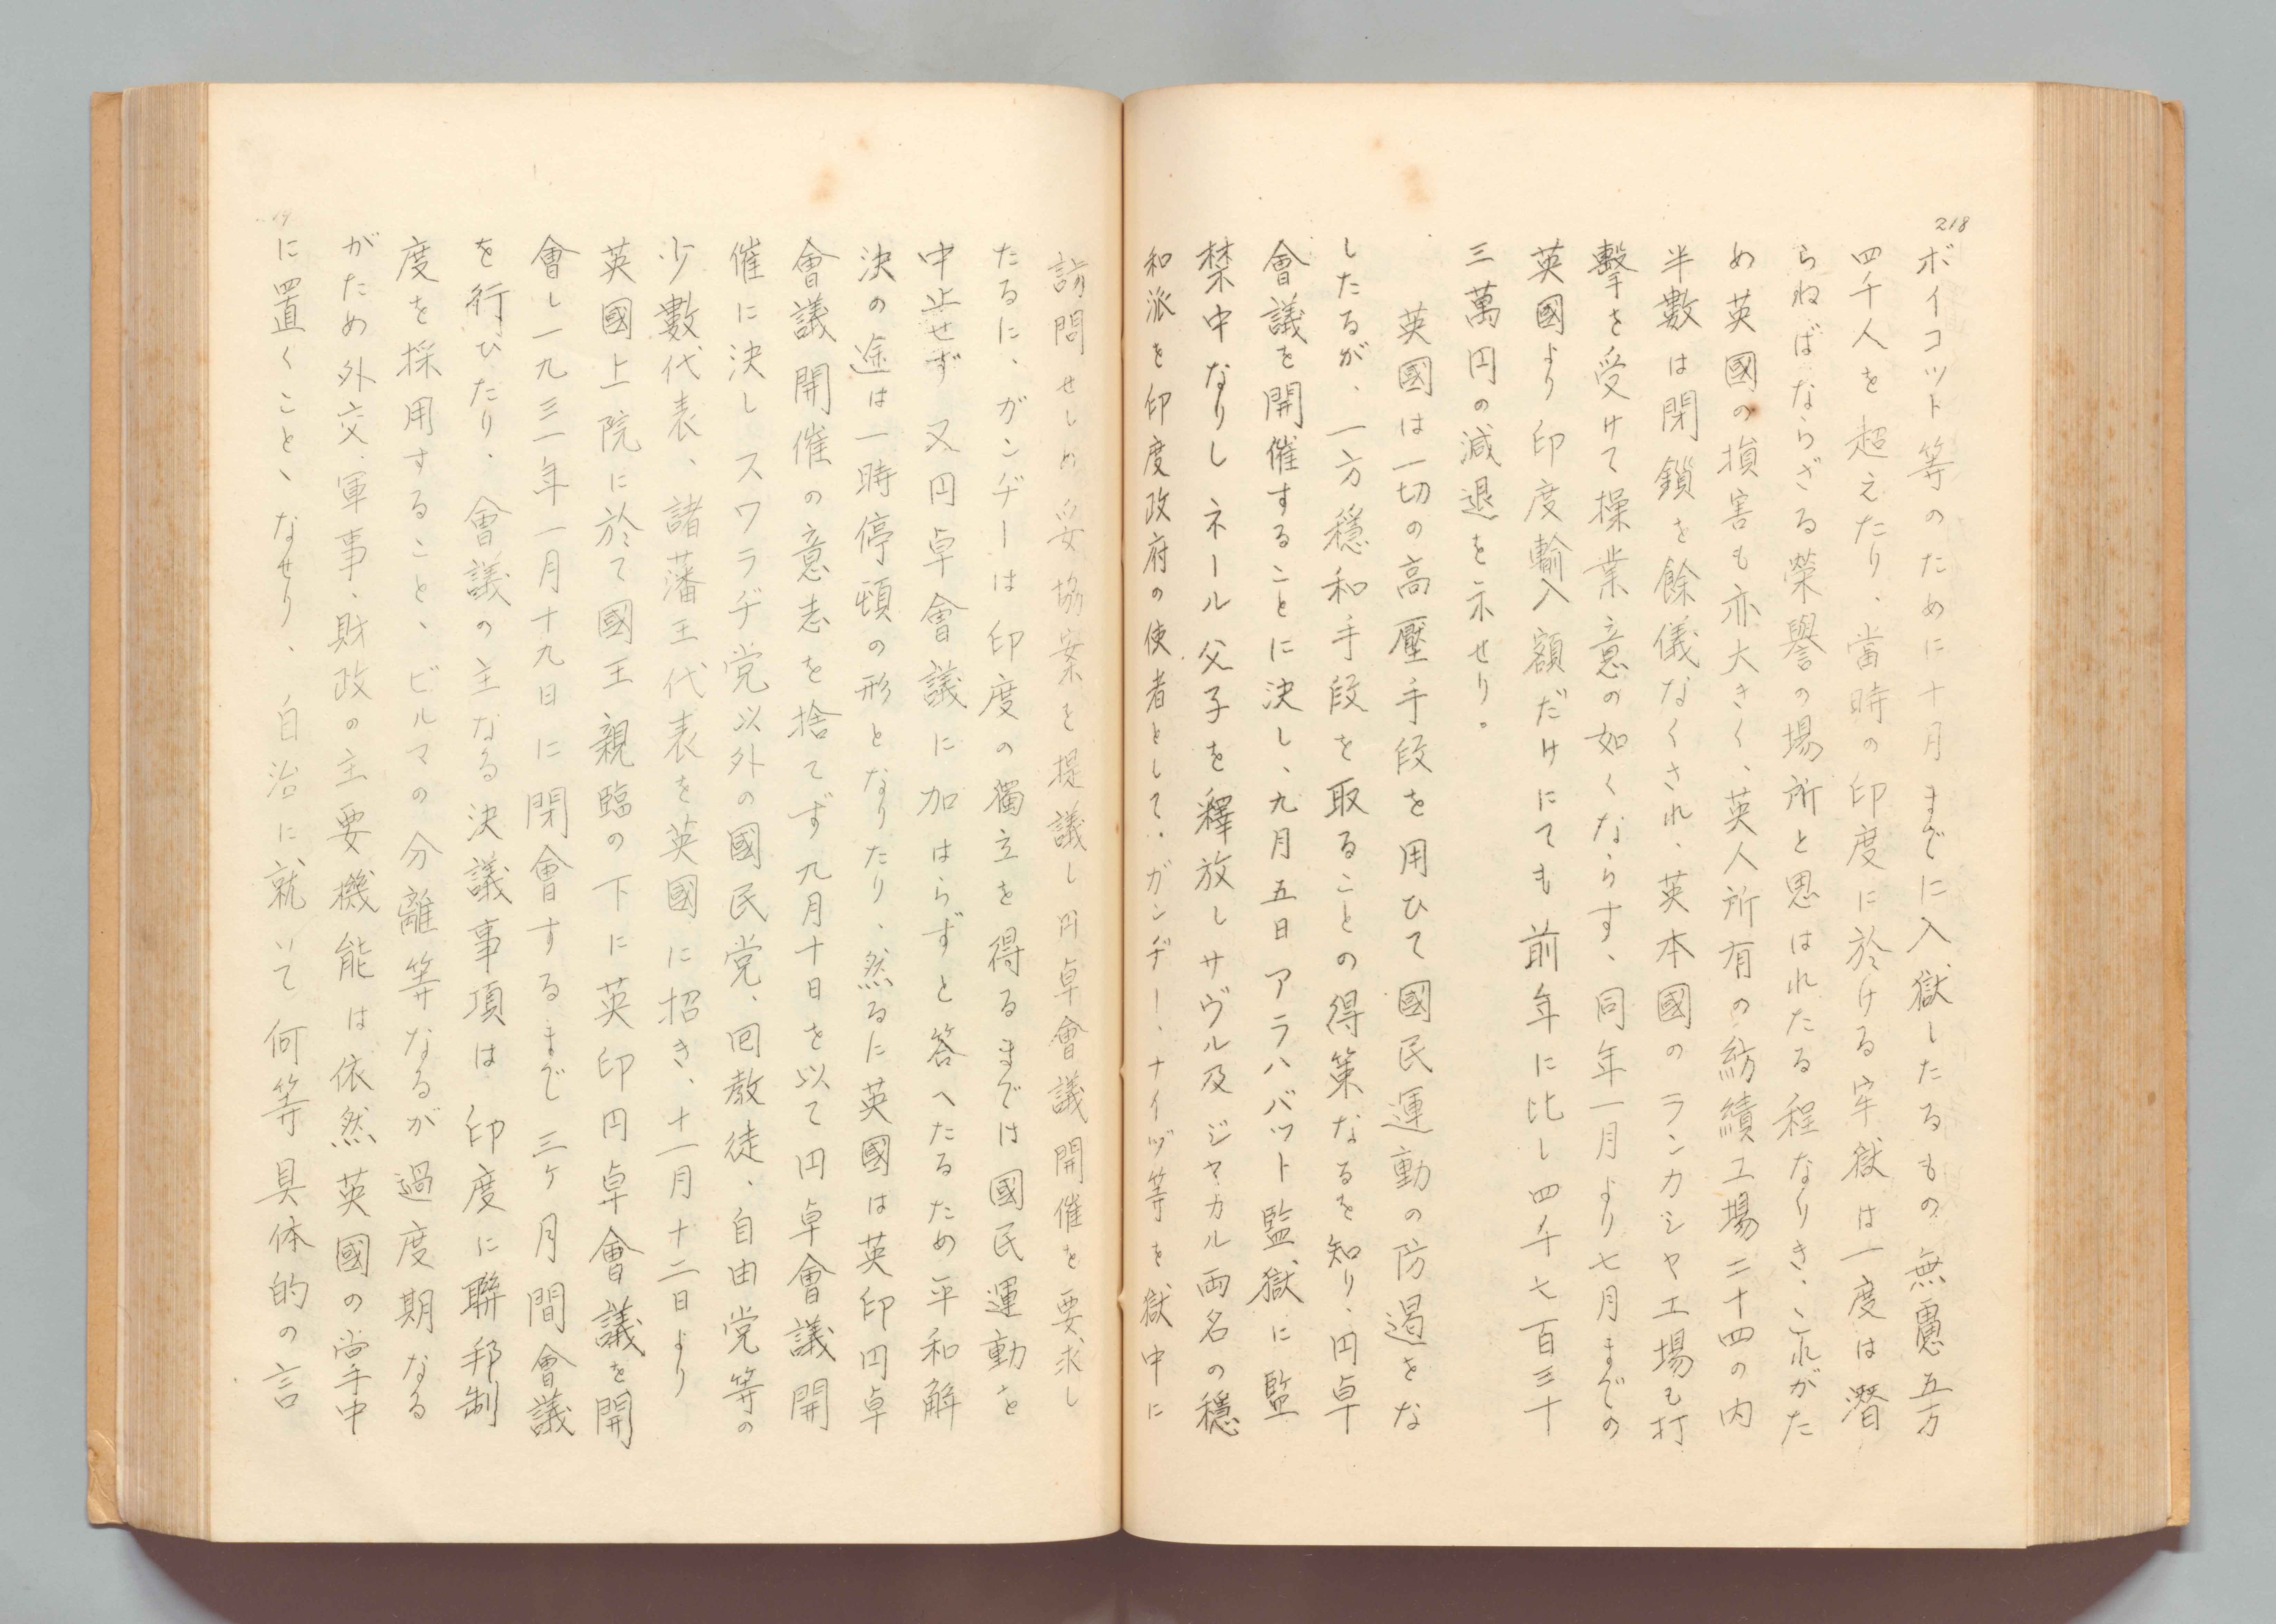 218
ボイコット等のために十月までに入獄したるもの無慮五万
四千人を超えたり、當時の印度に於ける牢獄は一度は潜
らねばならざる榮譽の場所と思はれたる程なりき、これがた
め英國の損害も亦大きく、英人所有の紡績工場二十四の内
半數は閉鎖を餘儀なくされ、英本國のランカシヤ工場も打
擊を受けて操業意の如くならす、同年一月より七月までの
英國より印度輸入額だけにても前年に比し四千七百三十
三萬円の減退を示せり。
英國は一切の高壓手段を用ひて國民運動の防遏をな
したるが、一方穩和手段を取ることの得策なるを知り、円卓
會議を開催することに決し、九月五日アラハバット監獄に監
禁中なりしネール父子を釋放しサヴル及ジヤカル両名の穩
和派を印度政府の使者として、ガンヂー、ナイヅ等を獄中に
訪問せしめ妥協案を提議し円卓會議開催を要求し
たるに、ガンヂーは印度の獨立を得るまでは國民運動を
中止せず又円卓會議に加はらずと答へたるため平和解
決の途は一時停頓の形となりたり、然るに英國は英印円卓
會議開催の意志を捨てず九月十日を以て円卓會議開
催に決しスワラヂ党以外の國民党、回教徒、自由党等の
少數代表、諸藩王代表を英國に招き、十一月十二日より
英國上院に於て國王親臨の下に英印円卓會議を開
會し一九三一年一月十九日に閉會するまで三ヶ月間會議
を行ひたり、會議の主なる決議事項は印度に聯邦制
度を採用すること、ビルマの分離等なるが過度期なる
がため外交、軍事、財政の主要機能は依然英國の掌中
に置くことゝなせり、自治に就いて何等具体的の言
19